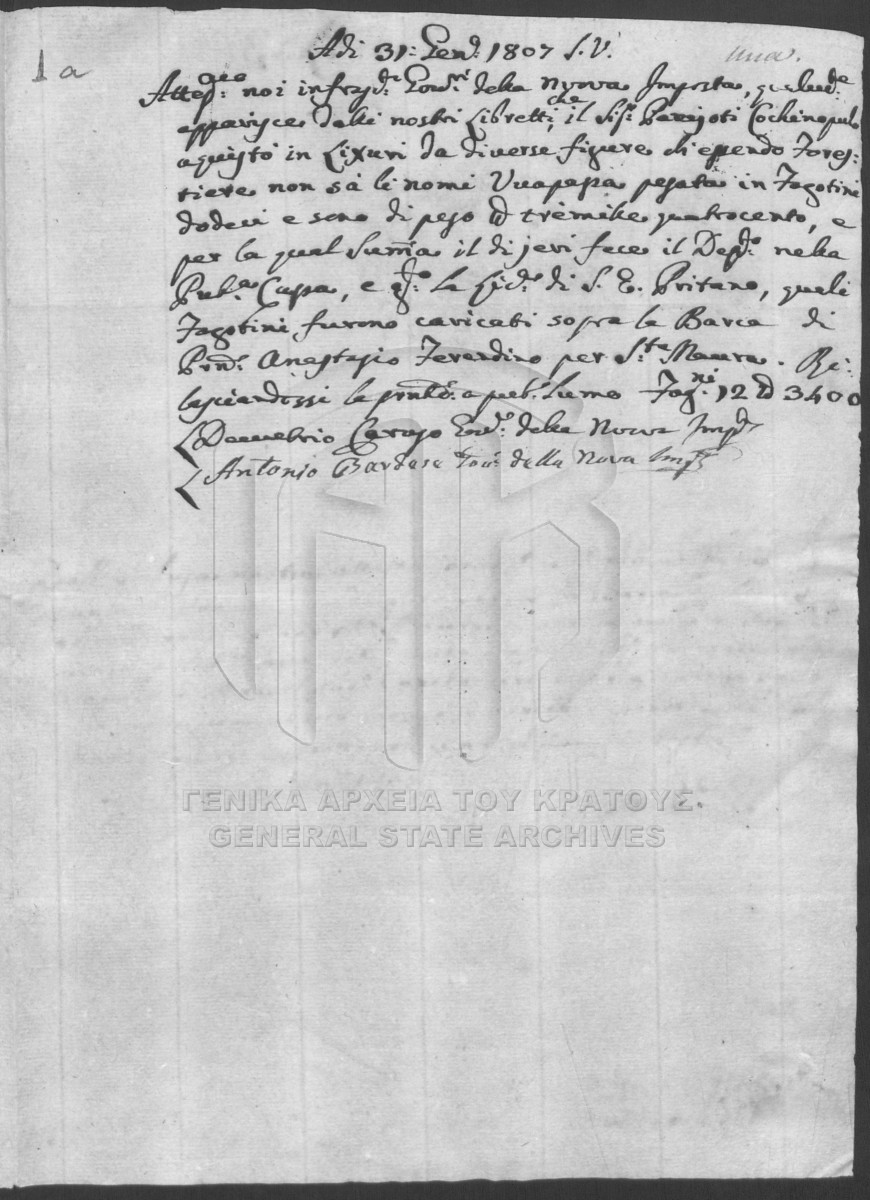 1 a
Adi 31: Gen.º 1807 S. V.
una.
noi infras.ti della Nuova Imposta,
apparisce dalli nostri Libretti, che il Sig.r Panajoti Cochinopulo
aquistò in Lixuri da diverse figure ch'essendo Fores-
tiere non sà li nomi Uvapassa pesata in Fagotini
dodeci e sono di peso tremille quatrocento, e
per la qual Summa il di jeri fece il Dep.to nella
Pub.a Cassa, e la di S. E. Pritano, quali
Fagotini furono caricati sopra la Barca di
Pne. Anastasio Ferendino per S.ta Maura. Ri-
lasciandossi la a pub.o Lume Fag.ni 12 3400
Demetrio Caruso della Nuova Imp.ta
Antonio Bardase della Nova Imp.ta
ΓΕΝΙΚΑ ΑΡΧΕΙΑ ΤΟΥ ΚΡΑΤΟΥΣ.
GENERAL STATE ARCHIVES